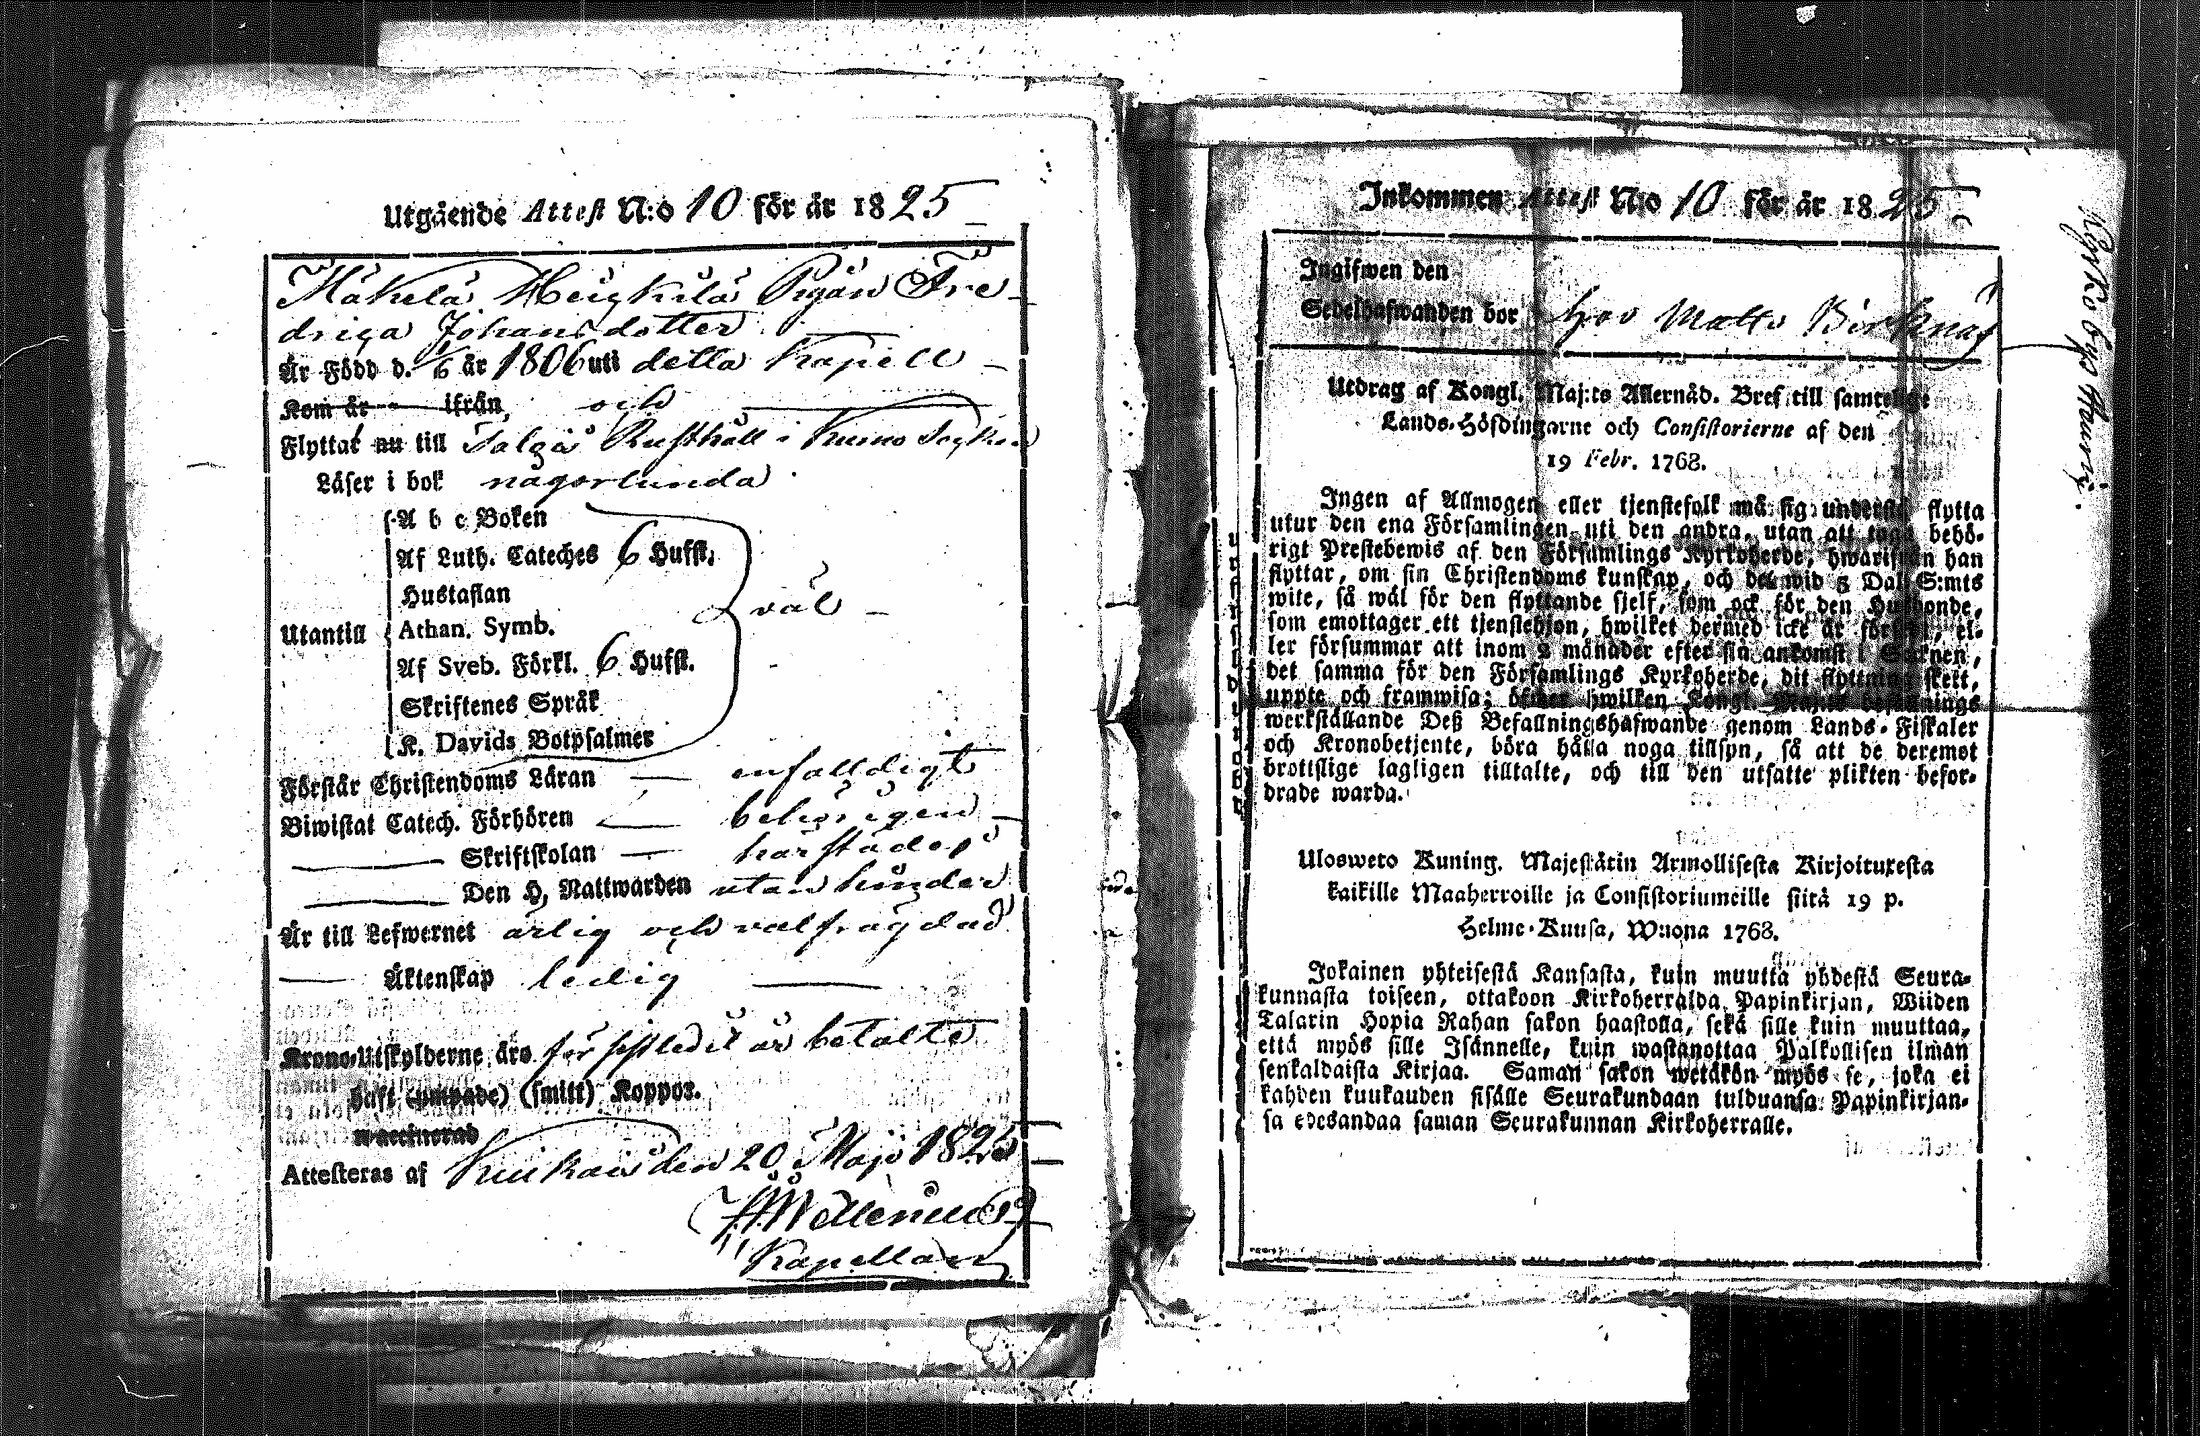 Utgående Attest N:o 10 för år 1825
Mäkelä Heickilä Pigan Fre-
driqa Johansdotter
Är Född d. 1/6 år 1806 uti detta Kapell
Kom år ifrån och
Flyttat nu till Salgå Rusthåll i Kumo Sockn
Läser i bok någorlunda
A b c Boken
Af Luth. Cateches 6 Hufst.
Hustaflan
väl
Utantill
Athan. Symb.
Af Sveb. Förkl. 6 Hufst.
Skriftenes Språk
K. Davids Botpsalmer
Förstår Christendoms Läran enfalldigt
Biwistat Catech. Förhören behörigen
Skriftskolan härstädes
Den H. Nattwarden utan hinder
Är till Lefwernet ärlig och välfrägdad
Äktenskap ledig
Krono-Utskylderne äro för sistledit år betalte
haft (ympade) (smitt) Koppor.
waccinerad
Attesteras af Kiukais den 20 Maji 1825
Kapellan
Inkommen Attest N:o 10 för år 1825
Ingifwen den
Sedelhafwanden bor hos Matts Björknäs
Kyrkobys Hauris
Utdrag af Kongl. Maj:ts Allernåd. Bref till samtelige
Lands-Höfdingarne och Consistorierne af den
19 Febr. 1768.
Ingen af Allmogen eller tjenstefolk må sig understå flytta
utur den ena Församlingen uti den andra, utan att taga behö-
rigt Prestebewis af den Församlings Kyrkoherde, hwarifrån han
flyttar, om sin Christendoms kunskap, och det wid 5 Dal. S:mts
wite, så wäl för den flyttande sjelf, som ock för den Husbonde,
som emottager ett tjenstehjon, hwilket dermed icke är försedt, el-
ler försummar att inom 2 månader efter sin ankomst i Soknen,
det samma för den Församlings Kyrkoherde, dit flyttning skett,
uppte och framwisa; öfwer hwilken Kongl. Maj:ts befallnings
werkställande Deß Befallningshafwande genom Lands-Fiskaler
och Kronobetjente, böra hålla noga tillsyn, så att de deremot
brottslige lagligen tilltalte, och till den utsatte plikten befor-
drade warda.
Ulosweto Kuning. Majestätin Armollisesta Kirjoituxesta
kaikille Maaherroille ja Consistoriumeille siitä 19 p.
Helme-Kuusa, Wuona 1768.
Jokainen yhteisestä Kansasta, kuin muutta yhdestä Seura-
kunnasta toiseen, ottakoon Kirkoherralda Papinkirjan, Wiiden
Talarin Hopia Rahan sakon haastolla, sekä sille kuin muuttaa,
että myös sille Isännelle, kuin wastanottaa Palkollisen ilman
senkaldaista Kirjaa. Saman sakon wetäkön myös se, joka ei
kahden kuukauden sisälle Seurakundaan tulduansa Papinkirjan-
sa edesandaa saman Seurakunnan Kirkoherralle.